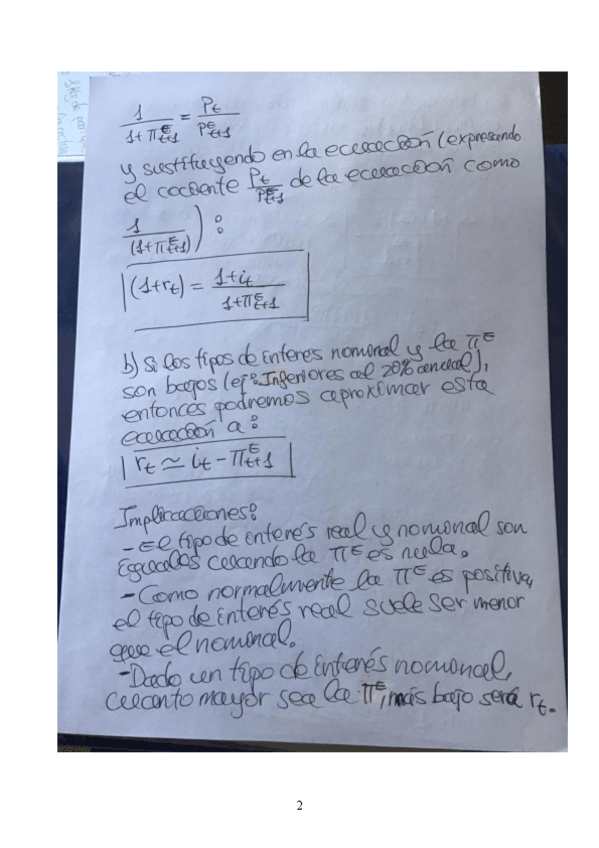 1/(1+π^E_{t+1}) = P_t/P^E_{t+1}
y sustituyendo en la ecuación (expresando
el cociente P_t/P^E_{t+1} de la ecuación como
1/(1+π^E_{t+1})) :
(1+r_t) = (1+i_t)/(1+π^E_{t+1})
b) Si los tipos de interes nominal y la π^E
son bajos (ej: Inferiores al 20% anual),
entonces podremos aproximar esta
ecuación a :
r_t ≃ i_t - π^E_{t+1}
Implicaciones:
- El tipo de interés real y nominal son
Iguales cuando la π^E es nula.
- Como normalmente la π^E es positiva,
el tipo de interés real suele ser menor
que el nominal.
- Dado un tipo de interés nominal,
cuanto mayor sea la π^E, más bajo será r_t.
2